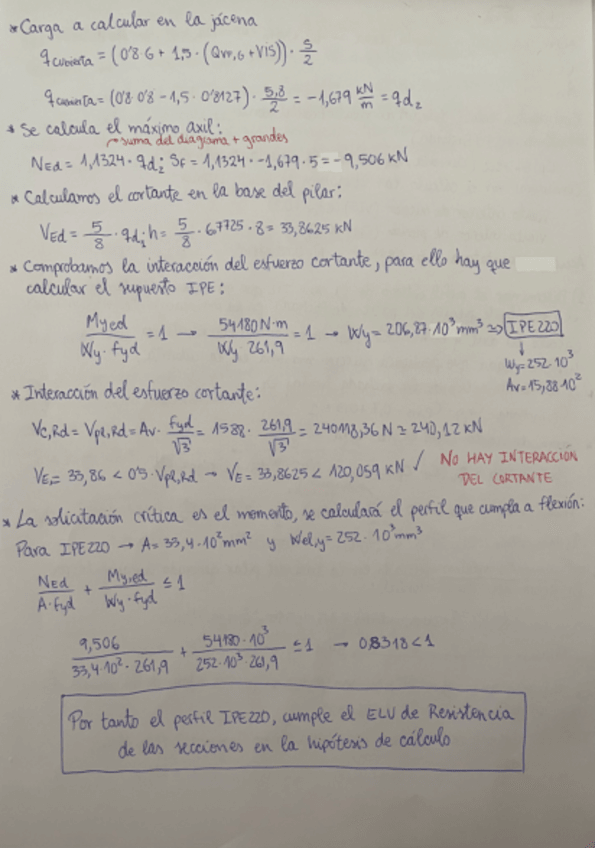 * Carga a calcular en la jácena
q cubierta = (0'8 G + 1,5 · (Qvv,G + VIS)) · S/2
q cubierta = (0'8 · 0'8 - 1,5 · 0'8127) · 5,8/2 = -1,679 kN/m = qd₂
* Se calcula el máximo axil:
suma del diagrama + grandes
NEd = 1,1324 · qd₂ · Sf = 1,1324 · -1,679 · 5 = -9,506 kN
* Calculamos el cortante en la base del pilar:
VEd = 5/8 · qd₁ · h = 5/8 · 6'7725 · 8 = 33,8625 kN
* Comprobamos la interacción del esfuerzo cortante, para ello hay que
calcular el supuesto IPE:
My,ed / Wy · fyd = 1 → 54180 N·m / Wy · 261,9 = 1 → Wy = 206,87 · 10³ mm³ ⇒ IPE220
Wy = 252 · 10³
Av = 15,88 · 10²
* Interacción del esfuerzo cortante:
Vc,Rd = Vpl,Rd = Av · fyd/√3 = 1588 · 261,9/√3 = 240118,36 N ≃ 240,12 kN
VE = 33,86 < 0'5 · Vpl,Rd → VE = 33,8625 < 120,059 kN ✓ NO HAY INTERACCIÓN
DEL CORTANTE
* La solicitación crítica es el momento, se calculará el perfil que cumpla a flexión:
Para IPE220 → A = 33,4 · 10² mm² y Wel,y = 252 · 10³ mm³
NEd / A · fyd + My,ed / Wy · fyd ≤ 1
9,506 / 33,4 · 10² · 261,9 + 54180 · 10³ / 252 · 10³ · 261,9 ≤ 1 → 0,8318 < 1
Por tanto el perfil IPE220, cumple el ELU de Resistencia
de las secciones en la hipótesis de cálculo